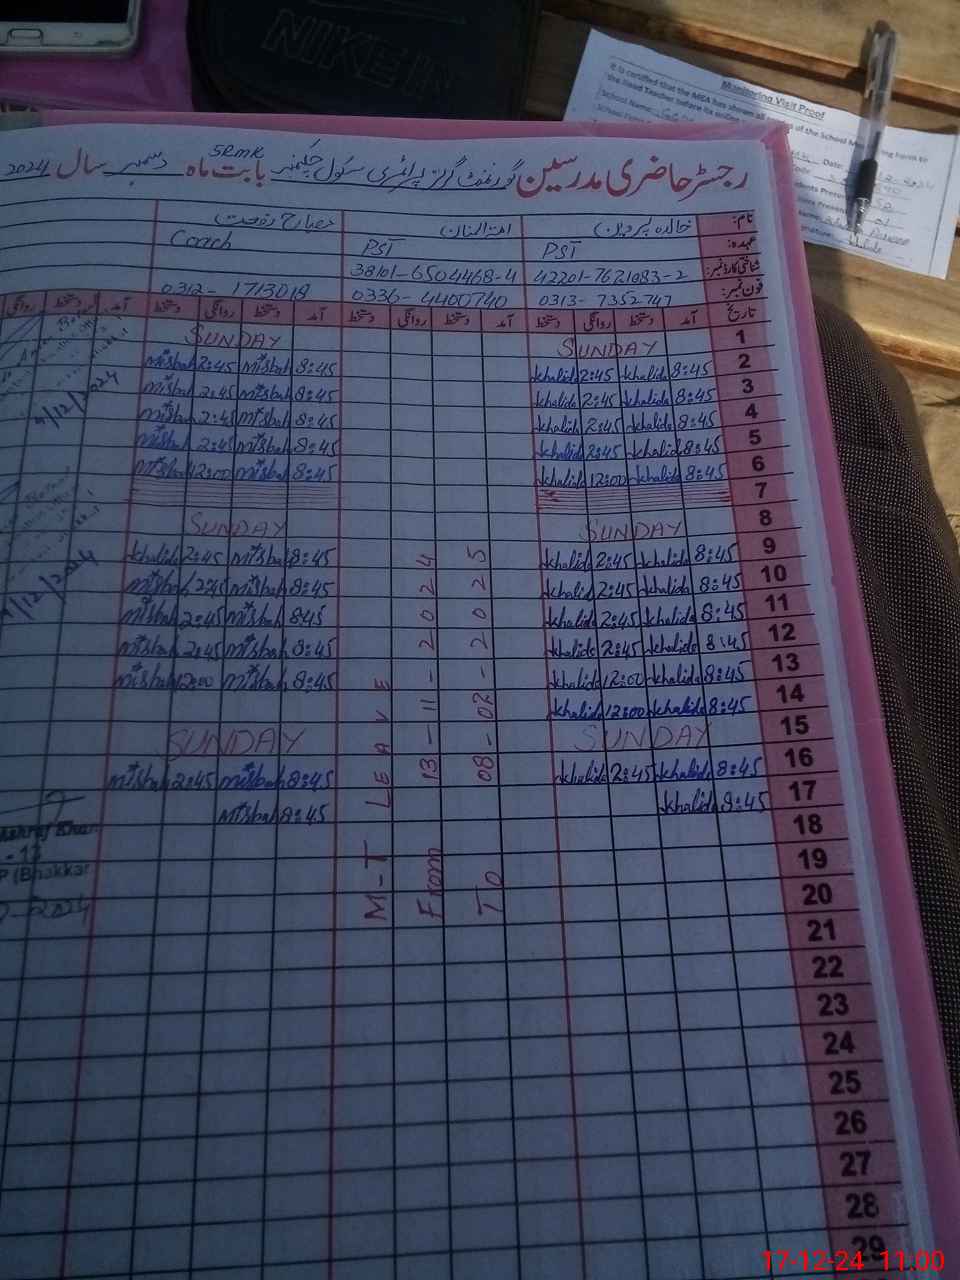 NIKE
Monitoring Visit Proof
It is certified that the MEA has shown all
of the School Monitoring Form to
the Head Teacher before its
School Name:
Date:
رجسٹر حاضری مدرسین گورنمنٹ گرلز پرائمری سکول چکنمبر 5RMK بابت ماہ دسمبر سال 2024
نام: خالدہ پروین امتہ المنان مصباح
عہدہ: PST PST Coach
شناختی کارڈ نمبر: 42201-7621083-2 38101-6504468-4
فون نمبر: 0313-7352747 0336-4400740 0312-1713018
تاریخ آمد دستخط روانگی دستخط آمد دستخط روانگی دستخط آمد دستخط روانگی دستخط آمد دستخط روانگی
1 SUNDAY SUNDAY
2 8:45 Khalida 2:45 Khalida 8:45 Misbah 2:45 Misbah
3 8:45 Khalida 2:45 Khalida 8:45 Misbah 2:45 Misbah
4 8:45 Khalida 2:45 Khalida 8:45 Misbah 2:45 Misbah
5 8:45 Khalida 2:45 Khalida 8:45 Misbah 2:45 Misbah
6 8:45 Khalida 12:00 Khalida 8:45 Misbah 12:00 Misbah
7
8 SUNDAY SUNDAY
9 8:45 Khalida 2:45 Khalida 8:45 Misbah 2:45 Khalida
10 8:45 Khalida 2:45 Khalida 8:45 Misbah 2:45 Misbah
11 8:45 Khalida 2:45 Khalida 845 Misbah 2:45 Misbah
12 8:45 Khalida 2:45 Khalida 8:45 Misbah 2:45 Misbah
13 8:45 Khalida 12:00 Khalida 8:45 Misbah 12:00 Misbah
14 8:45 Khalida 12:00 Khalida
15 SUNDAY SUNDAY
16 8:45 Khalida 2:45 Khalida 8:45 Misbah 2:45 Misbah
17 8:45 Khalida 8:45 Misbah
18
19
20
21
22
23
24
25
26
27
28
29
M-T LEAVE
From 13-11-2024
To 08-02-2025
/12/2024
/12/2024
Khan
(Bhakkar
-2024
17-12-24 11:00